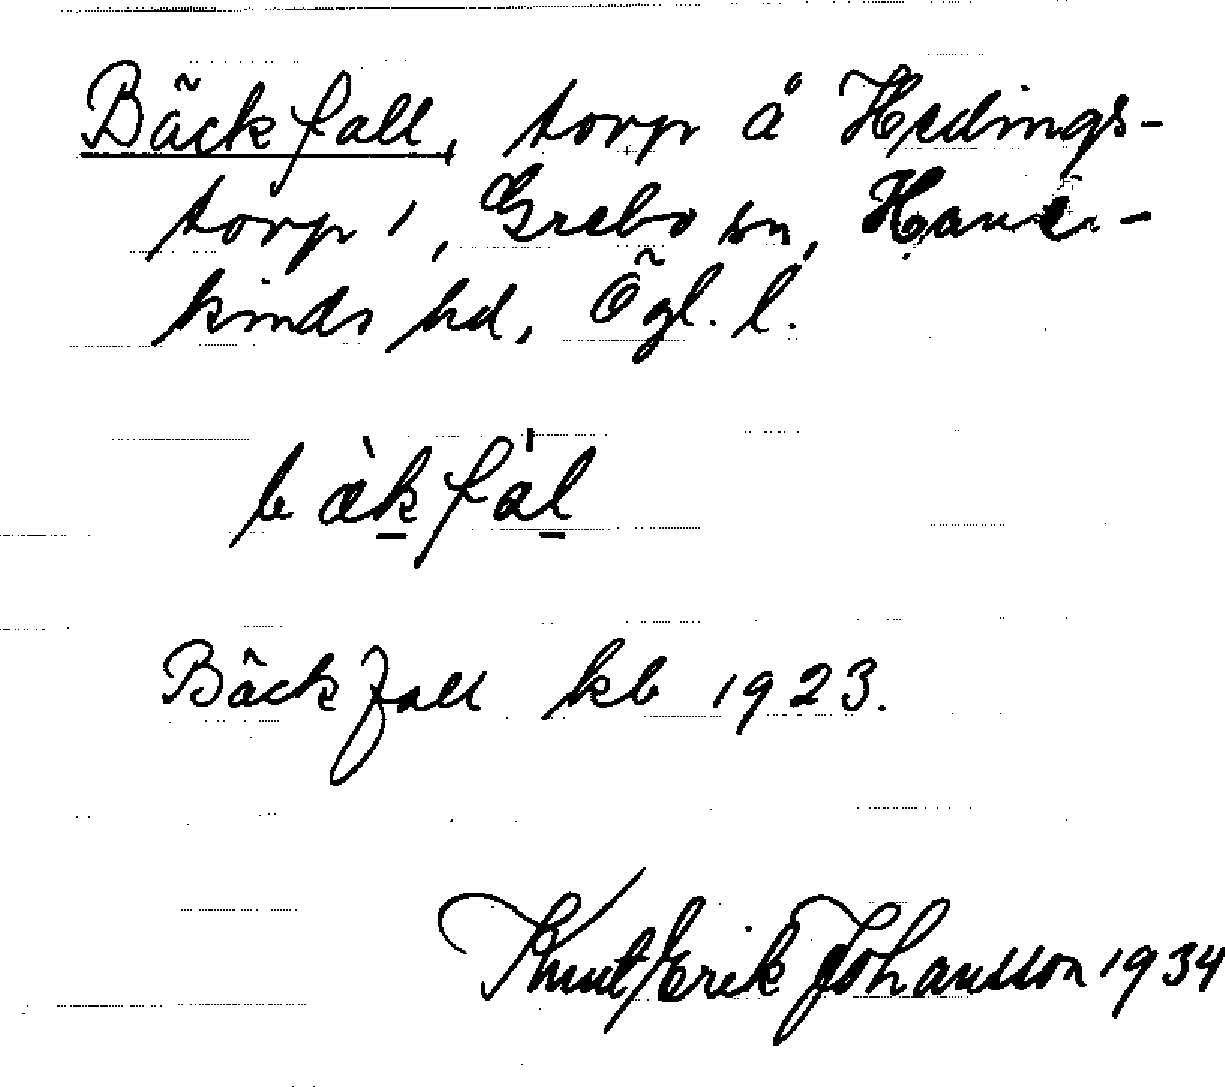 Bäckfall, torp å Hedings-
torp 1, Grebo sn, Hane-
kinds hd, Ögl. l.
bæ̀kfál
Bäckfall kb 1923.
Knut Erik Johansson 1934